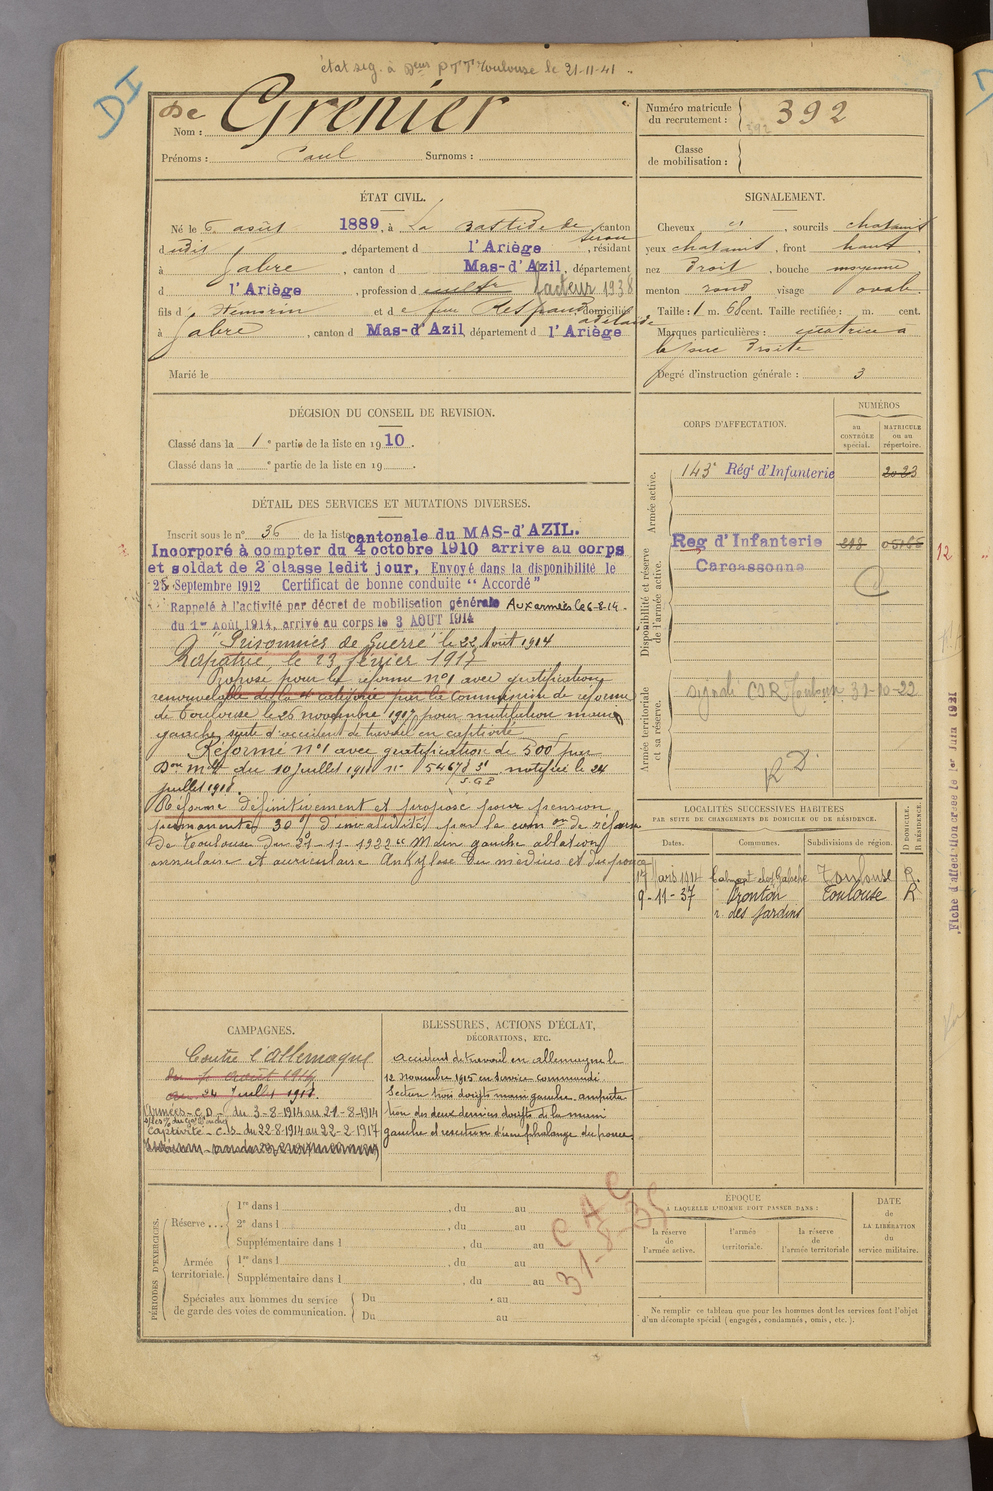 état sig. à Deurs PTT Toulouse le 21-11-41
DI
Nom : De Grenier
Prénoms : Paul Surnoms :
Numéro matricule du recrutement : 392
392
Classe de mobilisation :
ÉTAT CIVIL.
Né le 6 août 1889, à La Bastide de Serou, canton
dudit, département d l'Ariège, résidant
à Gabre, canton d Mas-d'Azil, département
d l'Ariège, profession d cultr facteur 1938
fils d Némorin et de feue Respaud Adélaïde domiciliés
à Gabre, canton d Mas-d'Azil, département d l'Ariège
Marié le
SIGNALEMENT.
Cheveux et, sourcils chatains
yeux chatains, front haut
nez Droit, bouche moyenne
menton rond visage ovale
Taille : 1 m. 68 cent. Taille rectifiée : m. cent.
Marques particulières : cicatrice à
la joue Droite
Degré d'instruction générale : 3
DÉCISION DU CONSEIL DE REVISION.
Classé dans la 1e partie de la liste en 1910.
Classé dans la e partie de la liste en 19 .
DÉTAIL DES SERVICES ET MUTATIONS DIVERSES.
Inscrit sous le n° 36 de la liste cantonale du MAS-d'AZIL.
Incorporé à compter du 4 octobre 1910 arrive au corps
et soldat de 2e classe ledit jour, Envoyé dans la disponibilité le
25 Septembre 1912 Certificat de bonne conduite "Accordé"
Rappelé à l'activité par décret de mobilisation générale Aux armées le 6-8-14.
du 1er Août 1914, arrivé au corps le 3 AOUT 1914
"Prisonnier de Guerre" le 22 Aout 1914
Rapatrié, le 23 février 1917
Proposé pour la réforme n°1 avec gratification
renouvelable de la 4e catégorie par la Commission de réforme
de Toulouse le 26 novembre 1917 pour mutilation main
gauche suite d'accident de travail en captivité
Réformé N°1 avec gratification de 500f par
Don Mlle du 10 Juillet 1918 n° 54678 S1 notifiée le 24
S.G.P
juillet 1918.
Réformé Définitivement et proposé pour pension
permanente 30% d'invalidité par la comon de réforme
De Toulouse du 31-11-1922 "Main gauche ablation
annulaire et auriculaire Ankylose du médius et du pouce
CORPS D'AFFECTATION.
NUMÉROS
au CONTRÔLE spécial.
MATRICULE ou au répertoire.
Armée active.
143e Régt d'Infanterie 2023
Disponibilité et réserve de l'armée active.
Reg d'Infanterie
Carcassonne
12
Armée territoriale et sa réserve.
signalé CSR Toulouse 31-10-22
R D.
Fiche d'affectation créée le 1er Juin 1921
LOCALITÉS SUCCESSIVES HABITÉES
PAR SUITE DE CHANGEMENTS DE DOMICILE OU DE RÉSIDENCE.
Dates. Communes. Subdivisions de région. D DOMICILE. R RÉSIDENCE.
17 Mars 1914 Calmont Toulouse R.
9-11-37 Fronton Toulouse R
r. des Jardins
CAMPAGNES.
Contre l'Allemagne
du 1 Août 1914
au 24 Juillet 1918.
Armées - C.D - du 3-8-1914 au 21-8-1914
Captivité - C.S - du 22-8-1914 au 22-2-1917
BLESSURES, ACTIONS D'ÉCLAT,
DÉCORATIONS, ETC.
Accident de travail en Allemagne le
12 novembre 1915 en service commandé.
Section trois doigts main gauche, amputa-
tion des deux derniers doigts de la main
gauche et resection d'une phalange du pouce
PÉRIODES D'EXERCICES.
Réserve ... 1re dans l , du au
2e dans l , du au
Supplémentaire dans l , du au
Armée territoriale. 1re dans l , du au
Supplémentaire dans l , du au
Spéciales aux hommes du service de garde des voies de communication. Du au
Du au
C A C
31-8-35
ÉPOQUE
A LAQUELLE L'HOMME DOIT PASSER DANS :
la réserve de l'armée active.
l'armée territoriale.
la réserve de l'armée territoriale
DATE de LA LIBÉRATION du service militaire.
Ne remplir ce tableau que pour les hommes dont les services font l'objet
d'un décompte spécial (engagés, condamnés, omis, etc.).